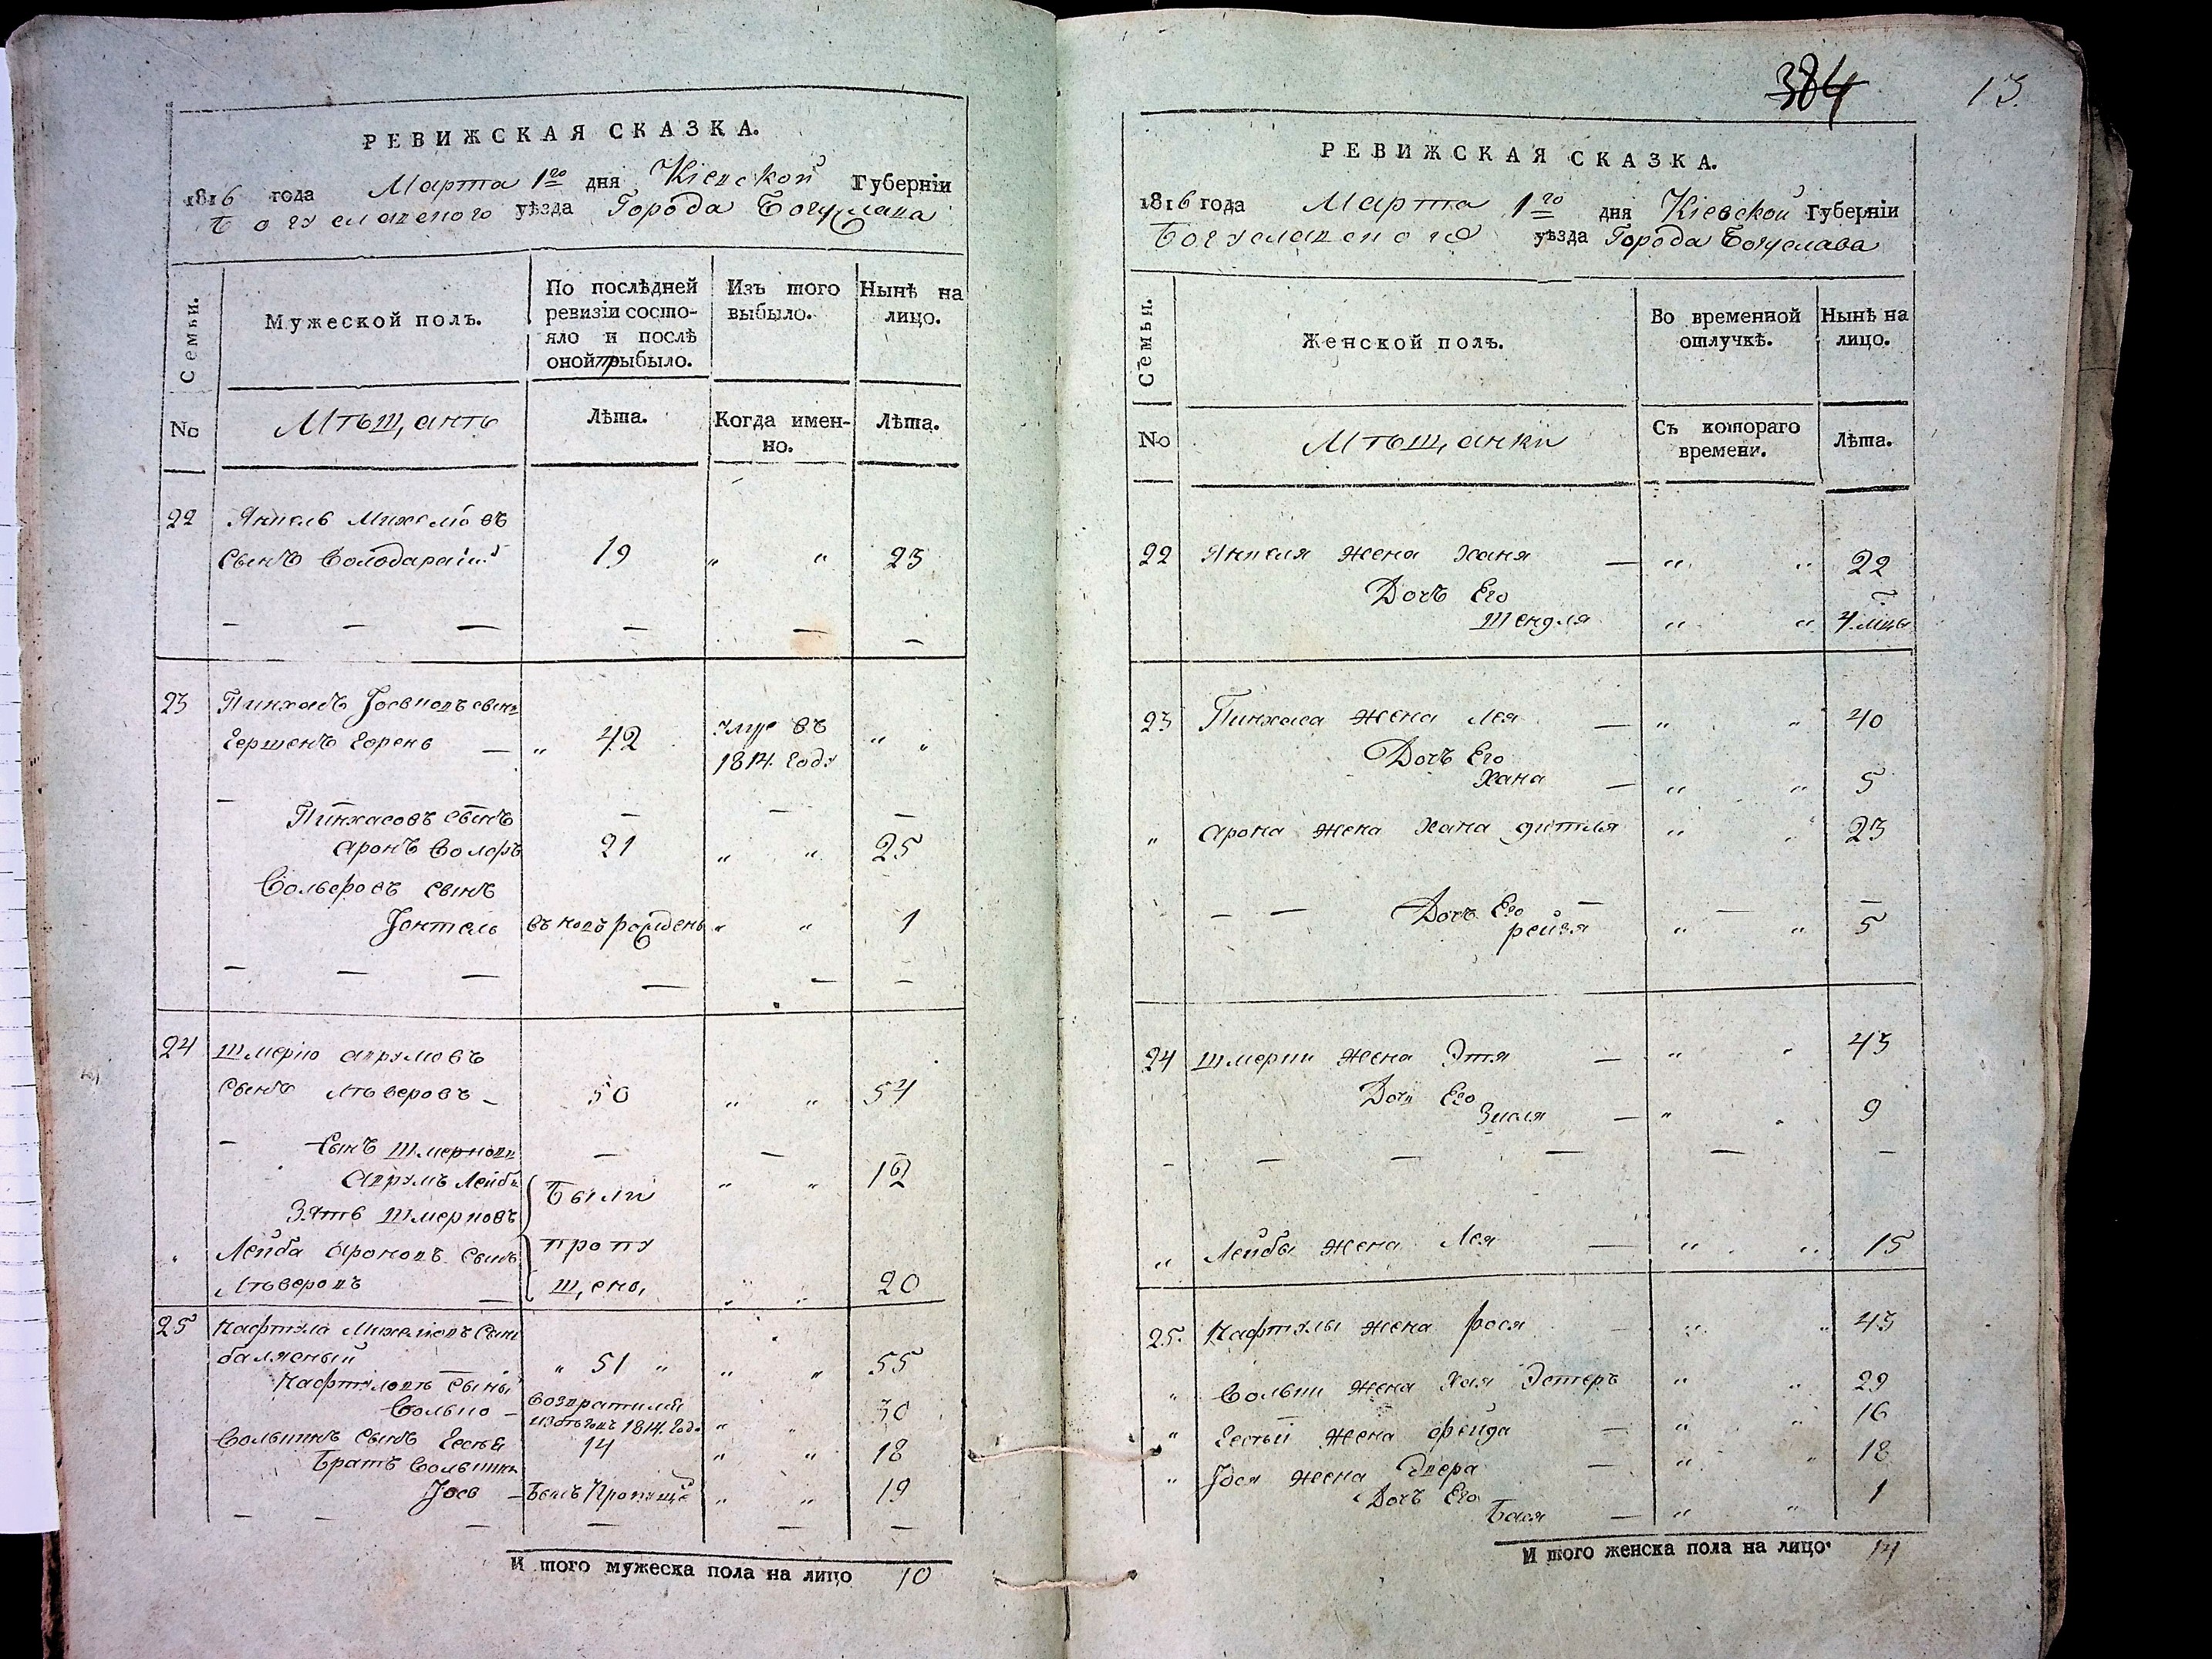 РЕВИЖСКАЯ СКАЗКА.
1816 года Марта 1го дня Кіевской Губерніи
Богуславского уѣзда Города Богуслава
Семьи.
Мужеской полъ.
По послѣдней
ревизіи состо-
яло и послѣ
оной прыбыло.
Изъ того
выбыло.
Нынѣ на
лицо.
No
Мѣщанѣ
Лѣта.
Когда имен-
но.
Лѣта.
22 Янкель
сынъ 19 " " 23
— — — — — —
23 Пинхасъ Іосиовъ сынъ
Гершенъ — " 42 умре въ " "
1814. году
— Пинхасовъ сынъ — — —
Аронъ Волфъ 21 " " 25
Вольфовъ сынъ
Іонтель " " 1
— — — — — —
24 Шмерко Аврумовъ
сынъ 50 " " 54
— сынъ — —
Аврумъ Лейба " " 12
Зять Шмерковъ Были
" Лейба Ароновъ сынъ пропу
— щено, " " 20
25 Нафтула сынъ
балясный " 51 " " " 55
Нафтуловъ сыны
Волько — возвратился
1814. году " " 30
сынъ Евсей 14 " " 18
Братъ
Іось — Былъ Пропуще " " 19
— — — — — —
И того мужеска пола на лицо 10
384
13.
РЕВИЖСКАЯ СКАЗКА.
1816 года Марта 1го дня Кіевской Губерніи
Богуславского уѣзда Города Богуслава
Семьи.
Женской полъ.
Во временной
отлучкѣ.
Нынѣ на
лицо.
No
Мѣщанки
Съ котораго
времени.
Лѣта.
22 Янкеля жена Ханя — " " 22
Дочъ Его
Шендля " " 4. мцы
23 Пинхаса жена Лея — " " 40
Дочъ Его
Хана — " " 5
" Арона жена Хана " " 23
— — Дочъ Его — — —
рейзя " " 5
24 Шмерки жена Этя — " " 43
Дочъ Его
— " " 9
— — — — — —
" Лейбы жена Лея — " " 15
25. Нафтулы жена рося — " " 43
" Вольки жена Хая Эстеръ " " 29
" жена фейда — " " 16
" Іося жена Двера — " " 18
Дочъ Его
Бася — " " 1
И того женска пола на лицо. 14